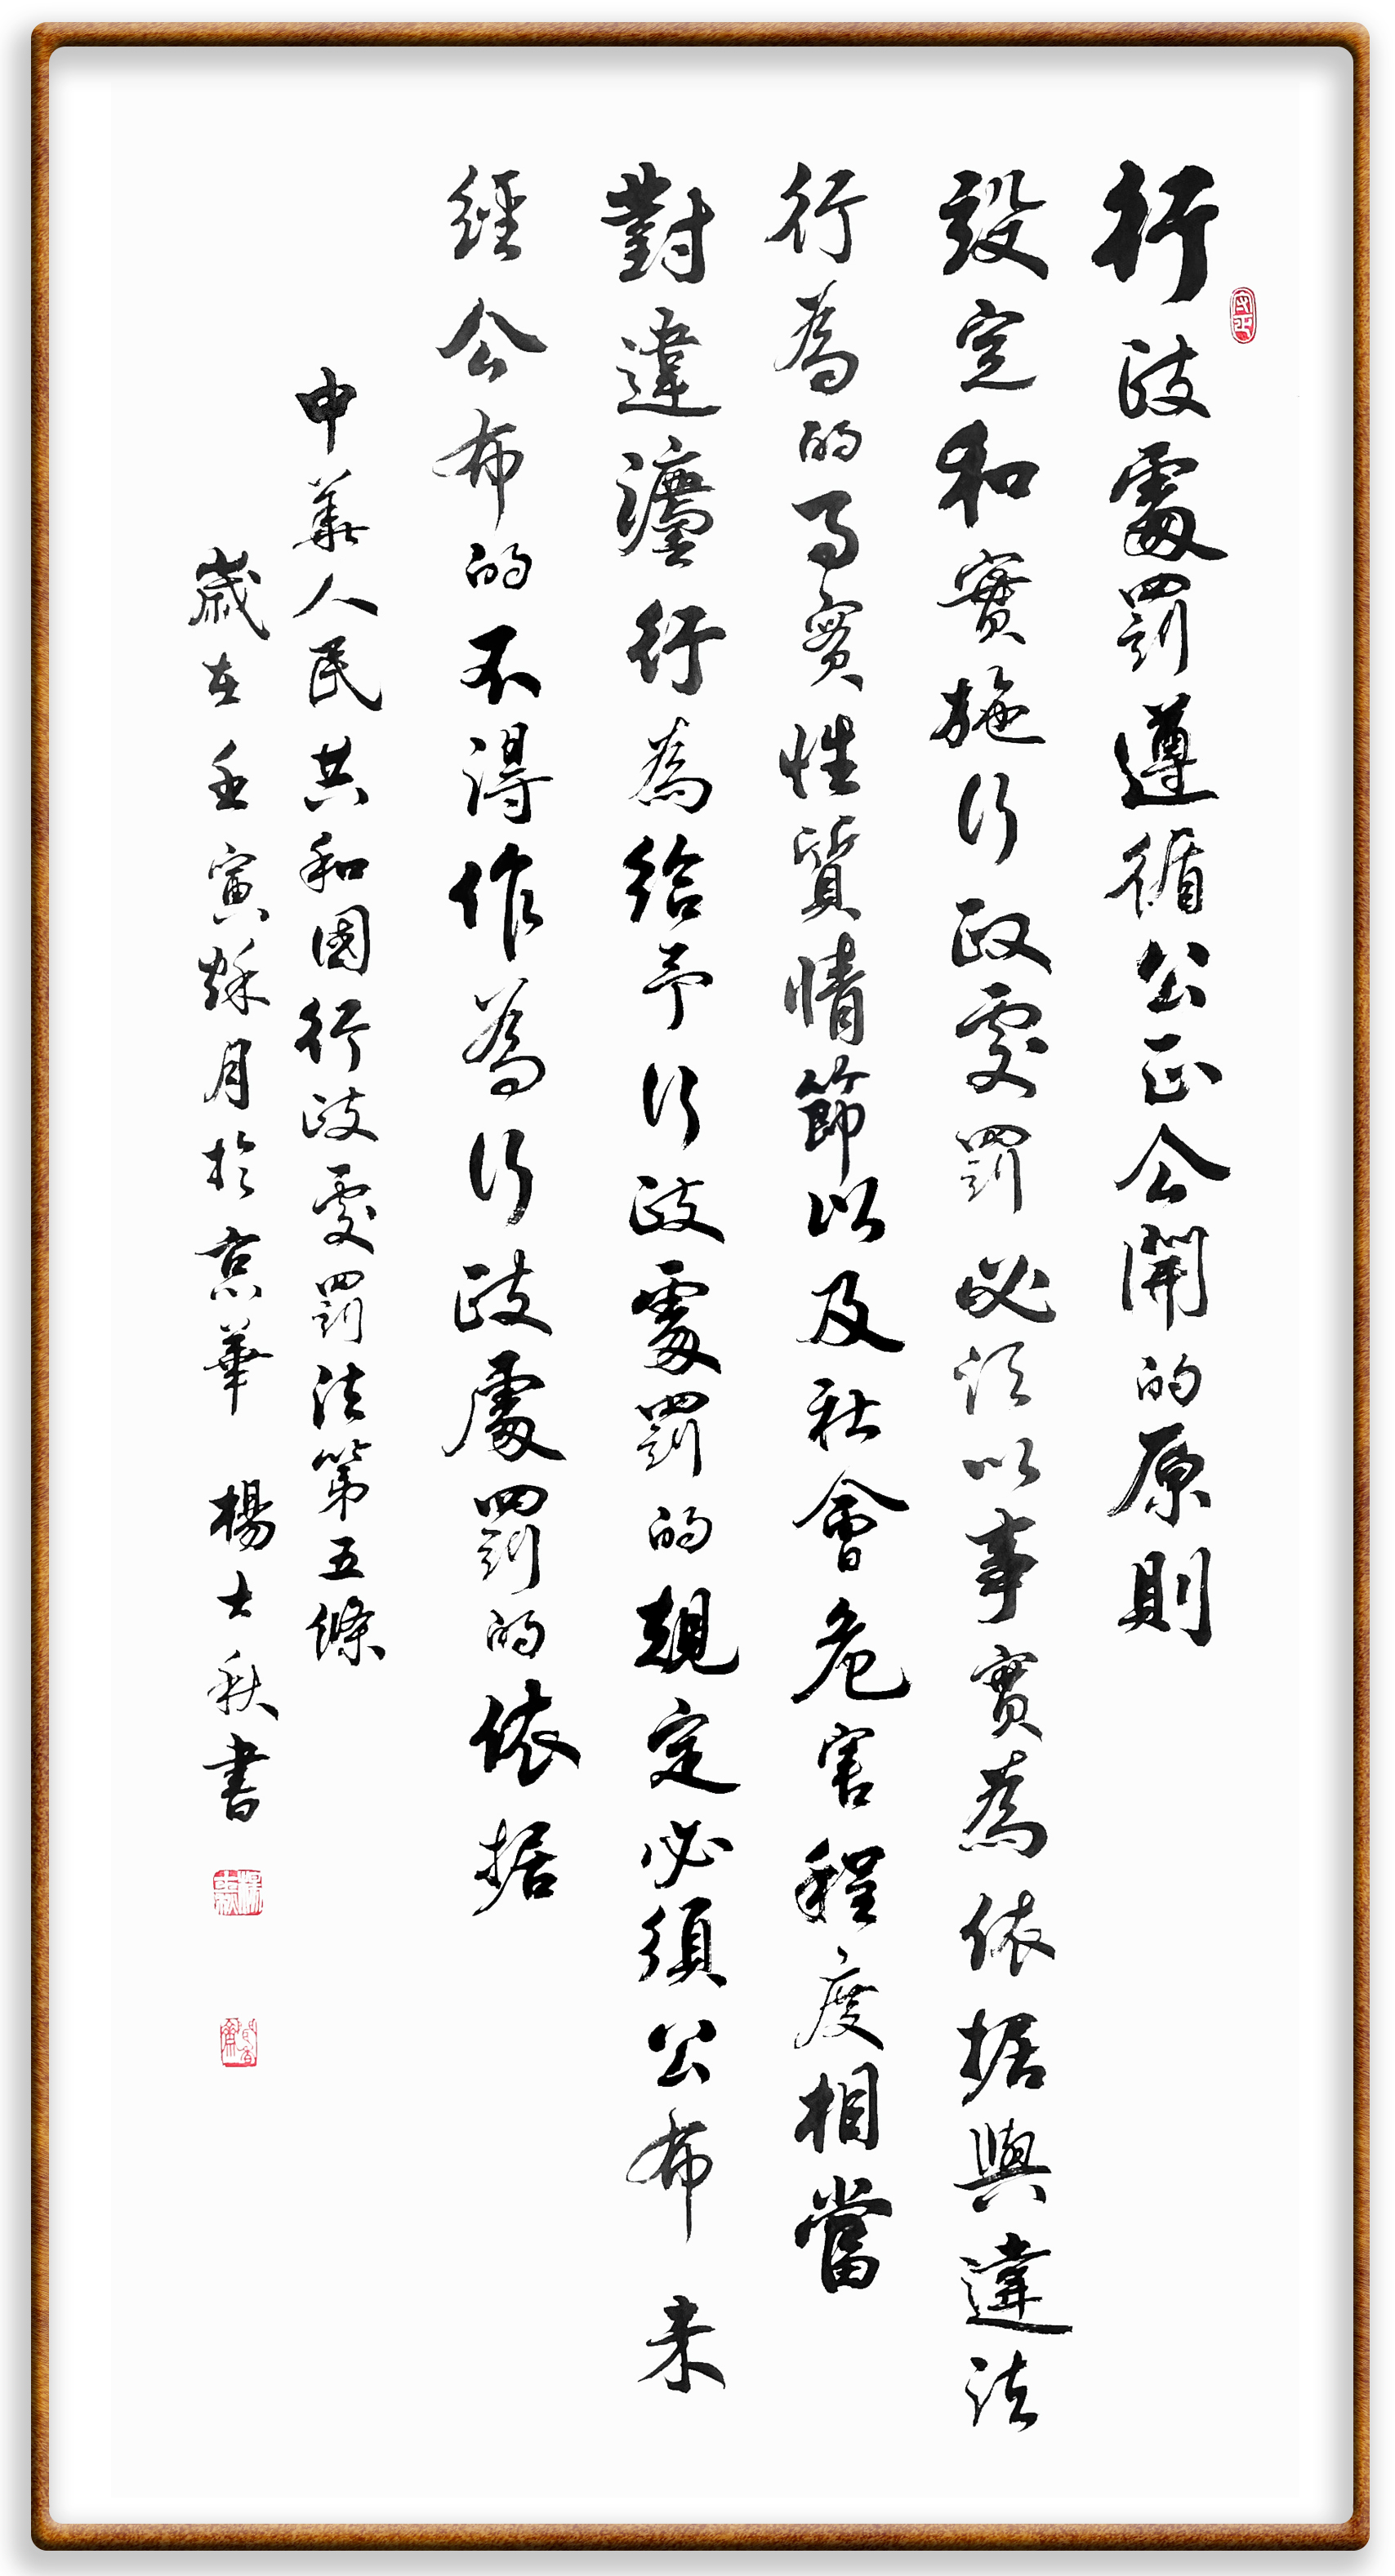 行政處罰遵循公正公開的原則
設定和實施行政處罰必須以事實為依据與違法
行為的事實性質情節以及社會危害程度相當
對違灋行為給予行政處罰的規定必須公布未
經公布的不得作為行政處罰的依据
中華人民共和國行政處罰法第五條
歲在壬寅秌月於京華 楊士秋書